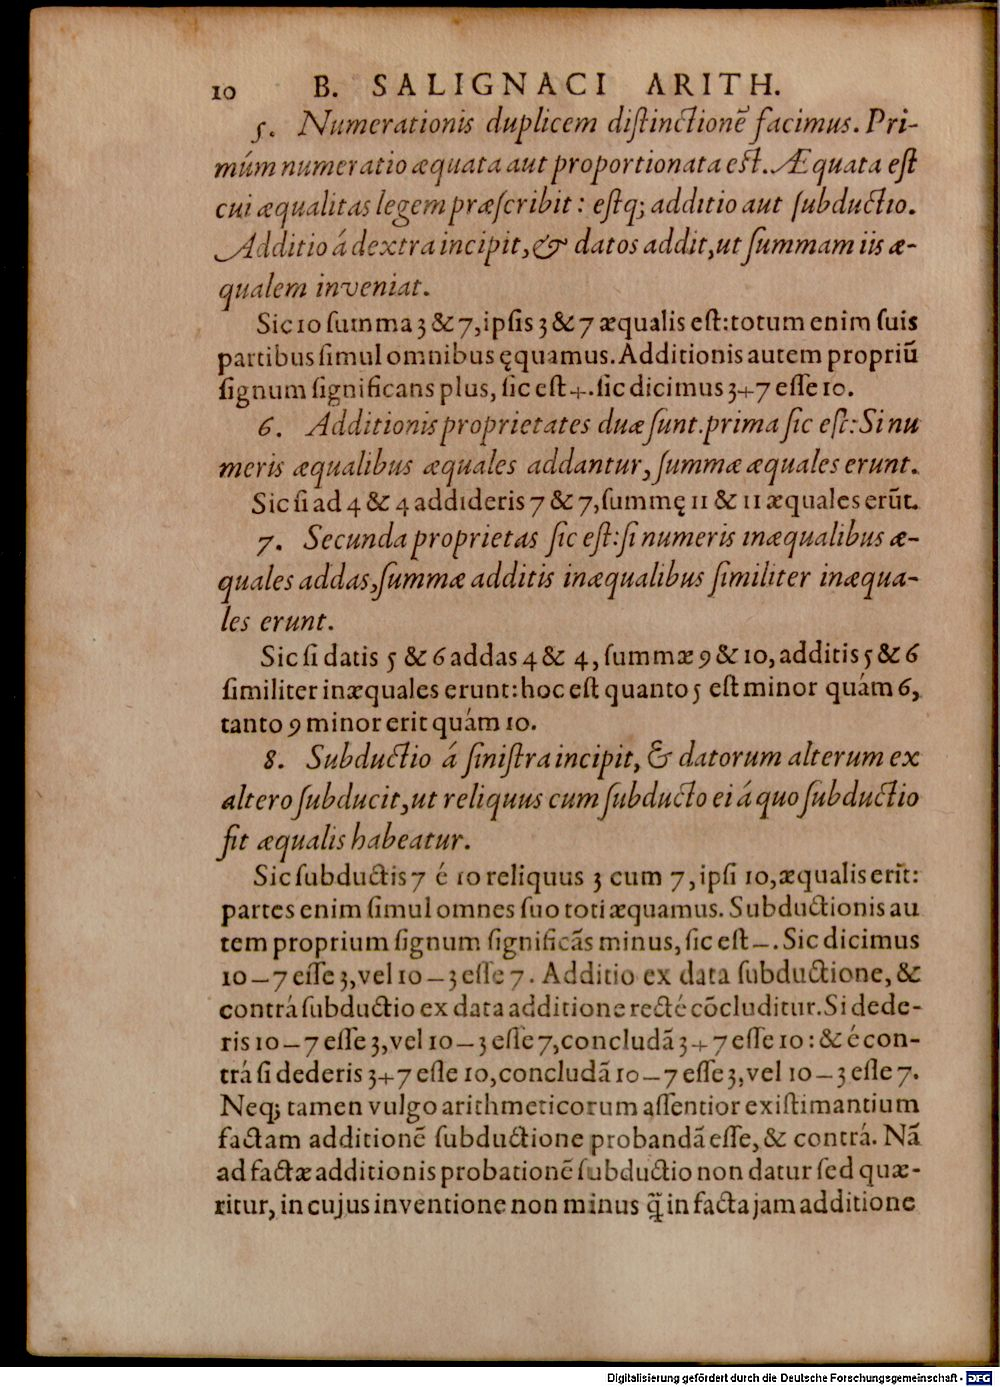 10 B. SALIGNACI ARITH.
5. Numerationis duplicem diſtinctionẽ facimus. Pri-
múm numeratio æquata aut proportionata eſt. Æquata eſt
cui æqualitas legem præſcribit: eſtq; additio aut ſubductio.
Additio á dextra incipit, & datos addit, ut ſummam iis æ-
qualem inveniat.
Sic 10 ſumma 3 & 7, ipſis 3 & 7 æqualis eſt: totum enim ſuis
partibus ſimul omnibus ęquamus. Additionis autem propriũ
ſignum ſignificans plus, ſic eſt +. ſic dicimus 3+7 eſſe 10.
6. Additionis proprietates duæ ſunt. prima ſic eſt: Si nu
meris æqualibus æquales addantur, ſummæ æquales erunt.
Sic ſi ad 4 & 4 addideris 7 & 7, ſummę 11 & 11 æquales erũt.
7. Secunda proprietas ſic eſt: ſi numeris inæqualibus æ-
quales addas, ſummæ additis inæqualibus ſimiliter inæqua-
les erunt.
Sic ſi datis 5 & 6 addas 4 & 4, ſummæ 9 & 10, additis 5 & 6
ſimiliter inæquales erunt: hoc eſt quanto 5 eſt minor quám 6,
tanto 9 minor erit quám 10.
8. Subductio á ſiniſtra incipit, & datorum alterum ex
altero ſubducit, ut reliquus cum ſubducto ei á quo ſubductio
fit æqualis habeatur.
Sic ſubductis 7 é 10 reliquus 3 cum 7, ipſi 10, æqualis erit:
partes enim ſimul omnes ſuo toti æquamus. Subductionis au
tem proprium ſignum ſignificãs minus, ſic eſt –. Sic dicimus
10 – 7 eſſe 3, vel 10 – 3 eſſe 7. Additio ex data ſubductione, &
contrá ſubductio ex data additione recté cõcluditur. Si dede-
ris 10 – 7 eſſe 3, vel 10 – 3 eſſe 7, concludã 3+7 eſſe 10: & é con-
trá ſi dederis 3+7 eſſe 10, concludã 10 – 7 eſſe 3, vel 10 – 3 eſſe 7.
Neq; tamen vulgo arithmeticorum aſſentior exiſtimantium
factam additionẽ ſubductione probandã eſſe, & contrá. Nã
ad factæ additionis probationẽ ſubductio non datur ſed quæ-
ritur, in cujus inventione non minus q̃ in facta jam additione
Digitalisierung gefördert durch die Deutsche Forschungsgemeinschaft - DFG